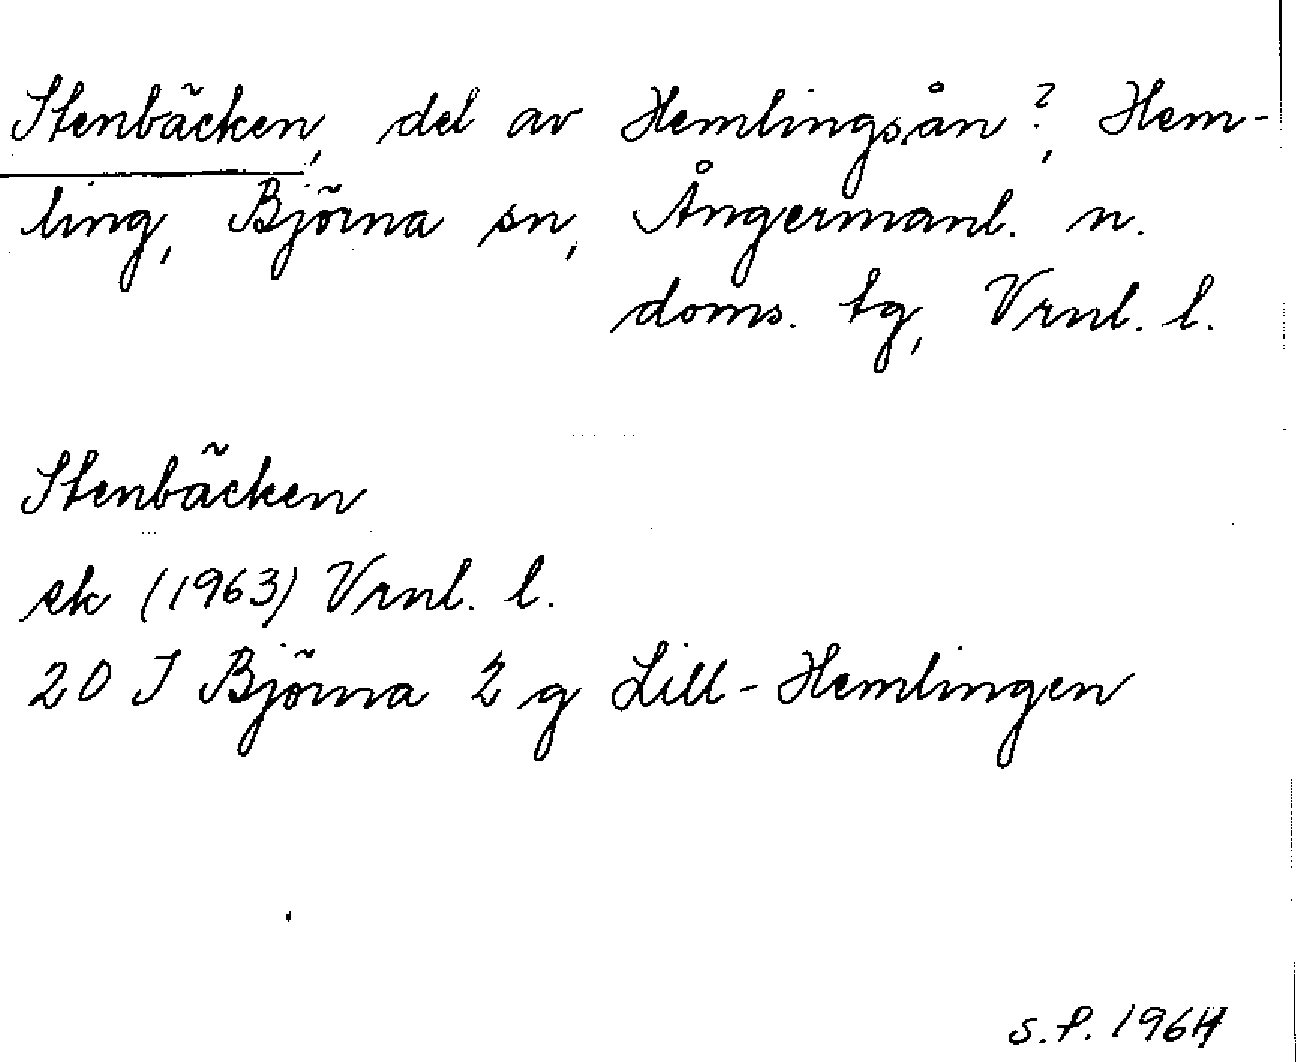 Stenbäcken, del av Hemlingsån?, Hem-
ling, Björna sn, Ångermanl. n.
doms. tg, Vrnl. l.
Stenbäcken
ek (1963) Vrnl. l.
20 I Björna 2 g Lill-Hemlingen
S.P. 1964